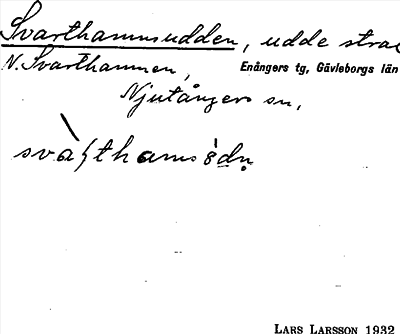 Svarthamnsudden, udde strax
N. Svarthamnen, Enångers tg, Gävleborgs län
Njutångers sn,
LARS LARSSON 1932